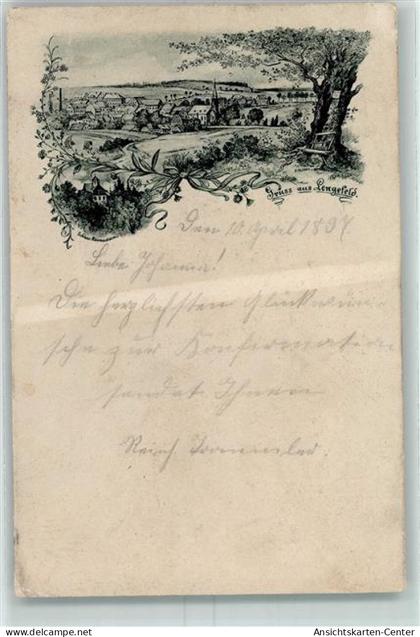 Gruss aus Lengefeld.
Den 10. April 1897
Liebe Johanna!
Die herzlichsten Glückwün-
sche zur Konfirmation
sendet Ihnen
Reich.
www.ansichtskarten-center.de
Ansichtskarten-Center